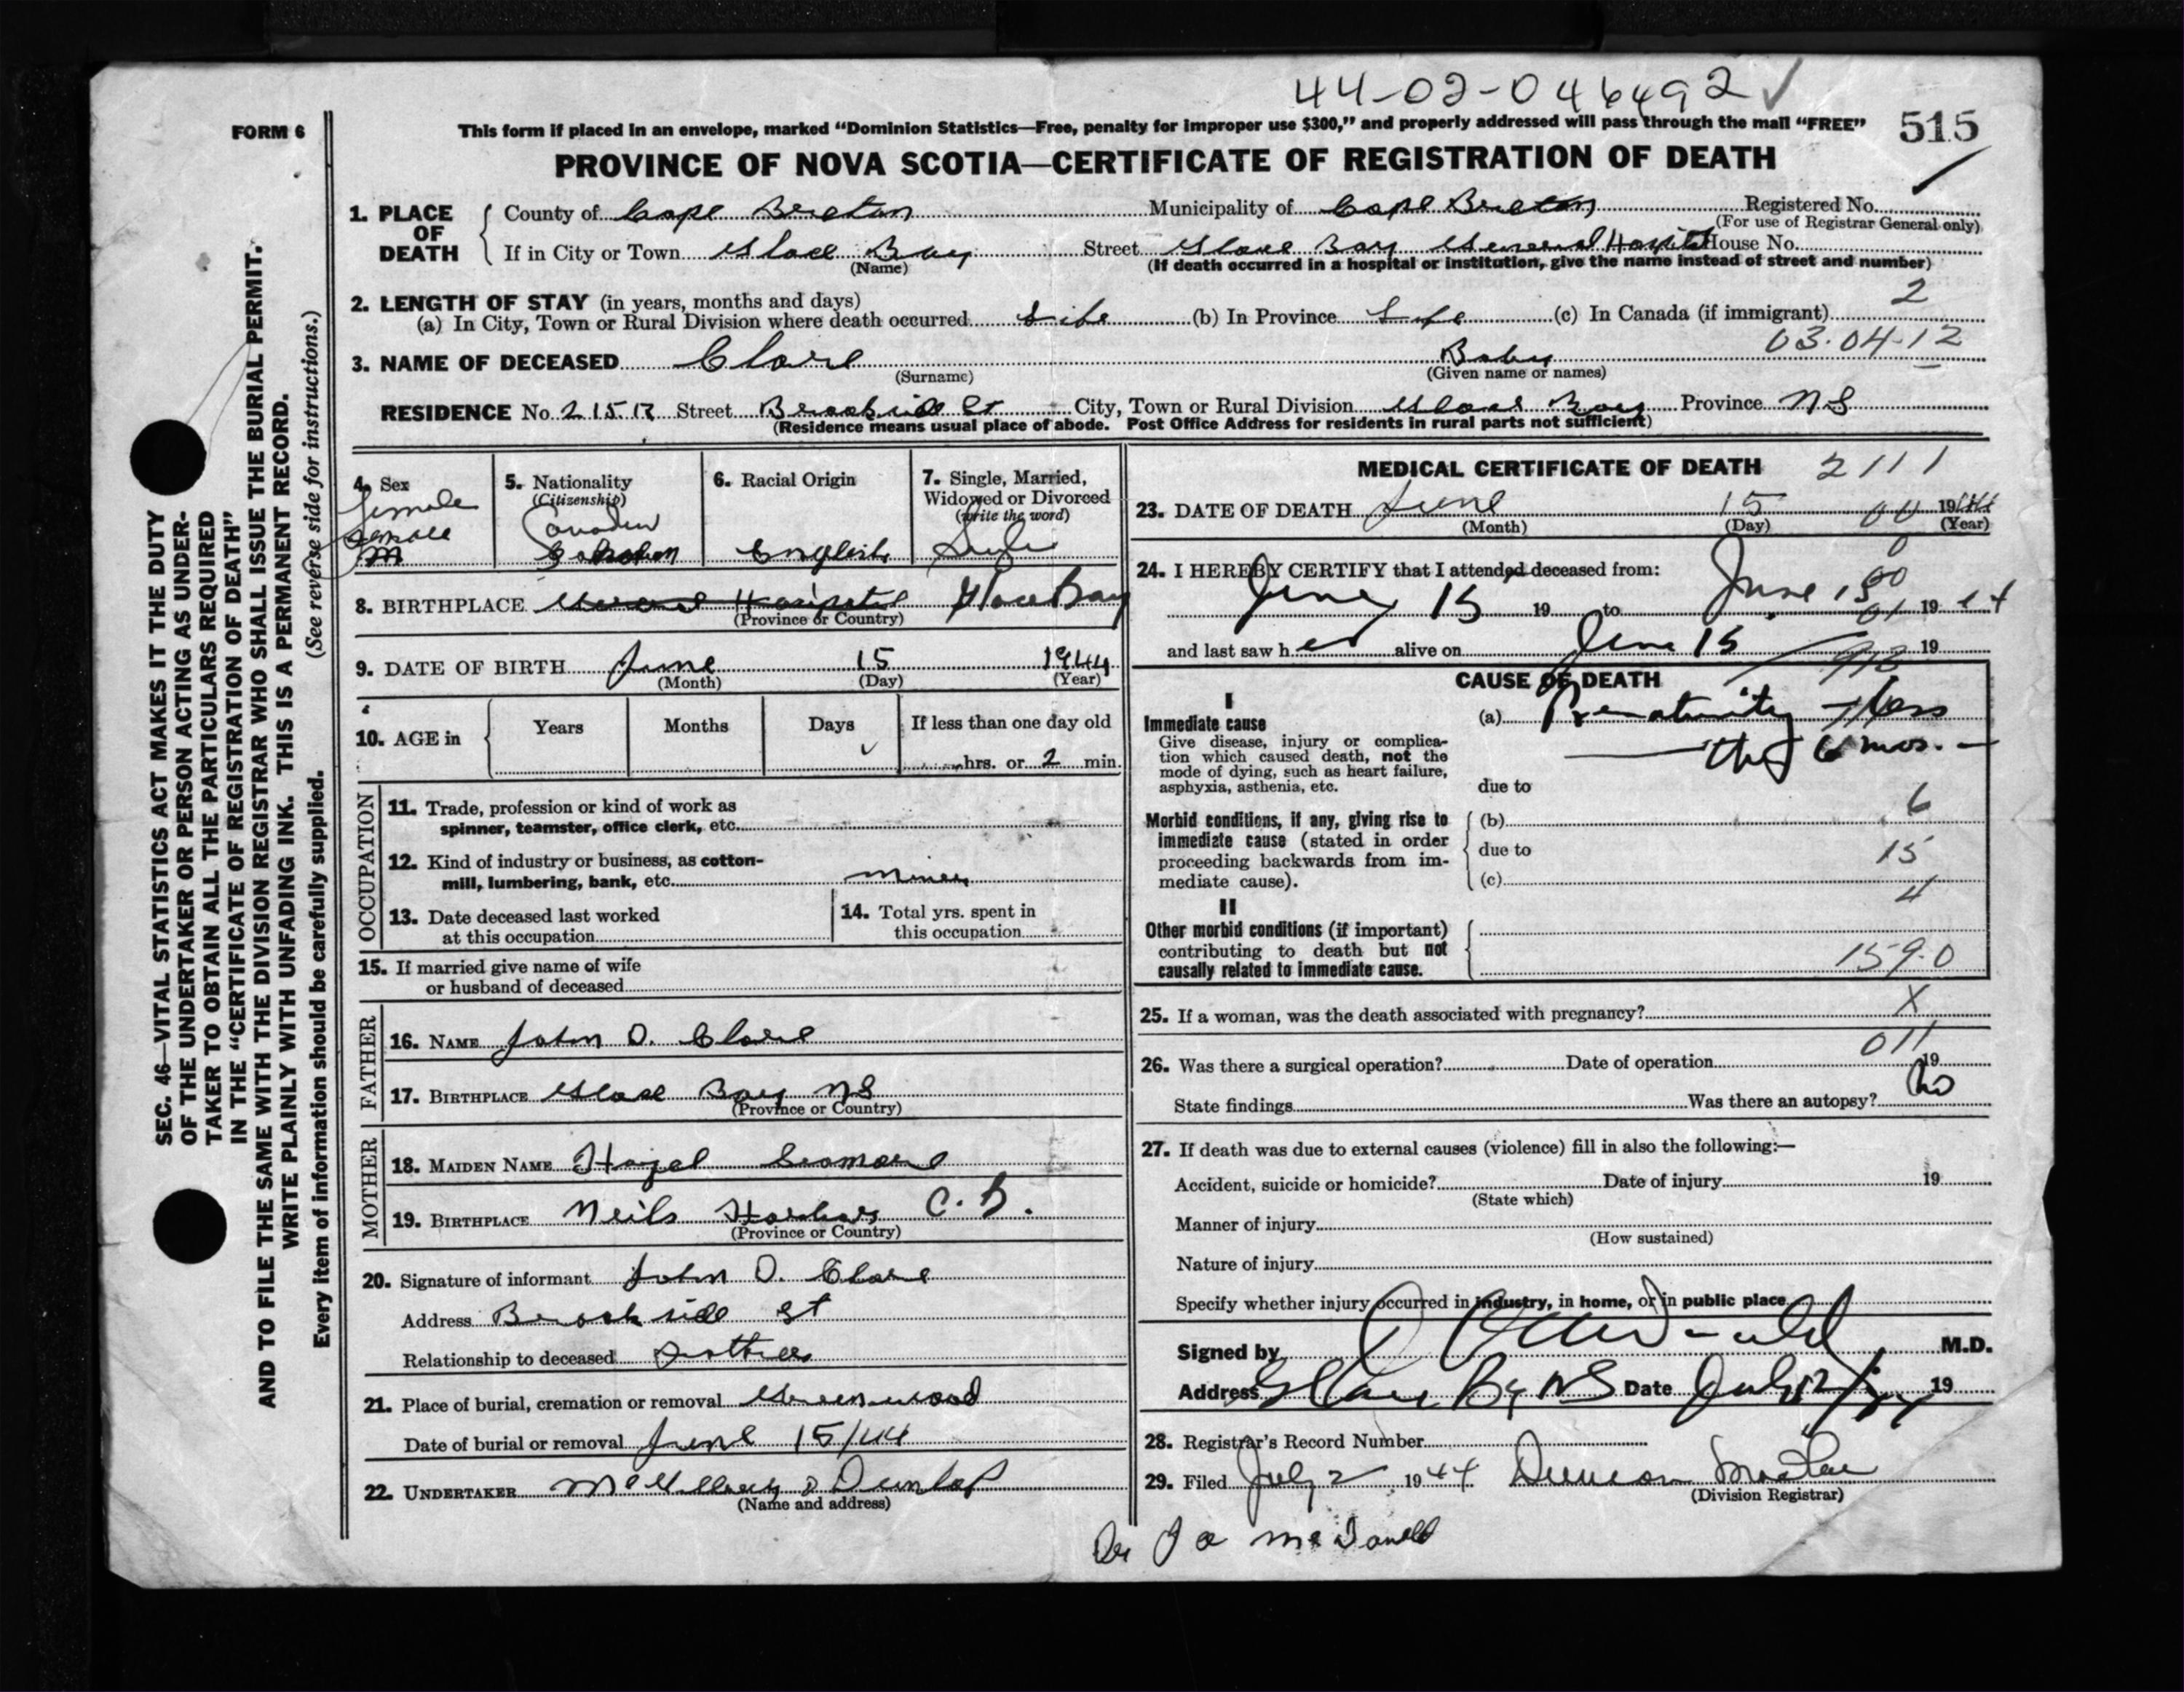 44-02-046492 ✓
FORM 6
This form if placed in an envelope, marked “Dominion Statistics—Free, penalty for improper use $300,” and properly addressed will pass through the mail “FREE”
515
PROVINCE OF NOVA SCOTIA—CERTIFICATE OF REGISTRATION OF DEATH
1. PLACE OF DEATH
County of Cape Breton Municipality of Cape Breton Registered No.
(For use of Registrar General only)
If in City or Town Glace Bay Street Glace Bay General Hospital House No.
(Name) (If death occurred in a hospital or institution, give the name instead of street and number)
2. LENGTH OF STAY (in years, months and days) 2
(a) In City, Town or Rural Division where death occurred Life (b) In Province Life (c) In Canada (if immigrant)
03.04.12
3. NAME OF DECEASED Baby
(Surname) (Given name or names)
RESIDENCE No. 215 Street Brookside St City, Town or Rural Division Glace Bay Province NS
(Residence means usual place of abode. Post Office Address for residents in rural parts not sufficient)
4. Sex
female
female
M
5. Nationality
(Citizenship)
Canadian
6. Racial Origin
English
7. Single, Married,
Widowed or Divorced
(write the word)
Single
8. BIRTHPLACE General Hospital Glace Bay
(Province or Country)
9. DATE OF BIRTH June 15 1944
(Month) (Day) (Year)
10. AGE in
Years Months Days If less than one day old
hrs. or 2 min.
OCCUPATION
11. Trade, profession or kind of work as
spinner, teamster, office clerk, etc.
12. Kind of industry or business, as cotton-
mill, lumbering, bank, etc.
13. Date deceased last worked
at this occupation
14. Total yrs. spent in
this occupation
15. If married give name of wife
or husband of deceased
FATHER
16. NAME John D.
17. BIRTHPLACE Glace Bay NS
(Province or Country)
MOTHER
18. MAIDEN NAME Hazel
19. BIRTHPLACE Neils Harbor C. B.
(Province or Country)
20. Signature of informant John D.
Address Brookside St
Relationship to deceased
21. Place of burial, cremation or removal Greenwood
Date of burial or removal June 15/44
22. UNDERTAKER Dunlop
(Name and address)
MEDICAL CERTIFICATE OF DEATH 2111
23. DATE OF DEATH June 15 00 1944
(Month) (Day) (Year)
24. I HEREBY CERTIFY that I attended deceased from:
June 15 19 to June 15 19 44
and last saw h er alive on June 15 19
CAUSE OF DEATH
I
Immediate cause
Give disease, injury or complica-
tion which caused death, not the
mode of dying, such as heart failure,
asphyxia, asthenia, etc.
(a) Prematurity - less
than 6 mos. -
due to
Morbid conditions, if any, giving rise to
immediate cause (stated in order
proceeding backwards from im-
mediate cause).
(b) 6
due to 15
(c) 4
II
Other morbid conditions (if important)
contributing to death but not
causally related to immediate cause.
159.0
25. If a woman, was the death associated with pregnancy? X
011
26. Was there a surgical operation? Date of operation 19
State findings Was there an autopsy? No
27. If death was due to external causes (violence) fill in also the following:—
Accident, suicide or homicide? Date of injury 19
(State which)
Manner of injury
(How sustained)
Nature of injury
Specify whether injury occurred in industry, in home, or in public place
Signed by M.D.
Address Glace Bay NS Date July 19
28. Registrar's Record Number
29. Filed July 2 1944 Duncan
(Division Registrar)
SEC. 46—VITAL STATISTICS ACT MAKES IT THE DUTY
OF THE UNDERTAKER OR PERSON ACTING AS UNDER-
TAKER TO OBTAIN ALL THE PARTICULARS REQUIRED
IN THE “CERTIFICATE OF REGISTRATION OF DEATH”
AND TO FILE THE SAME WITH THE DIVISION REGISTRAR WHO SHALL ISSUE THE BURIAL PERMIT.
WRITE PLAINLY WITH UNFADING INK. THIS IS A PERMANENT RECORD.
Every item of information should be carefully supplied. (See reverse side for instructions.)